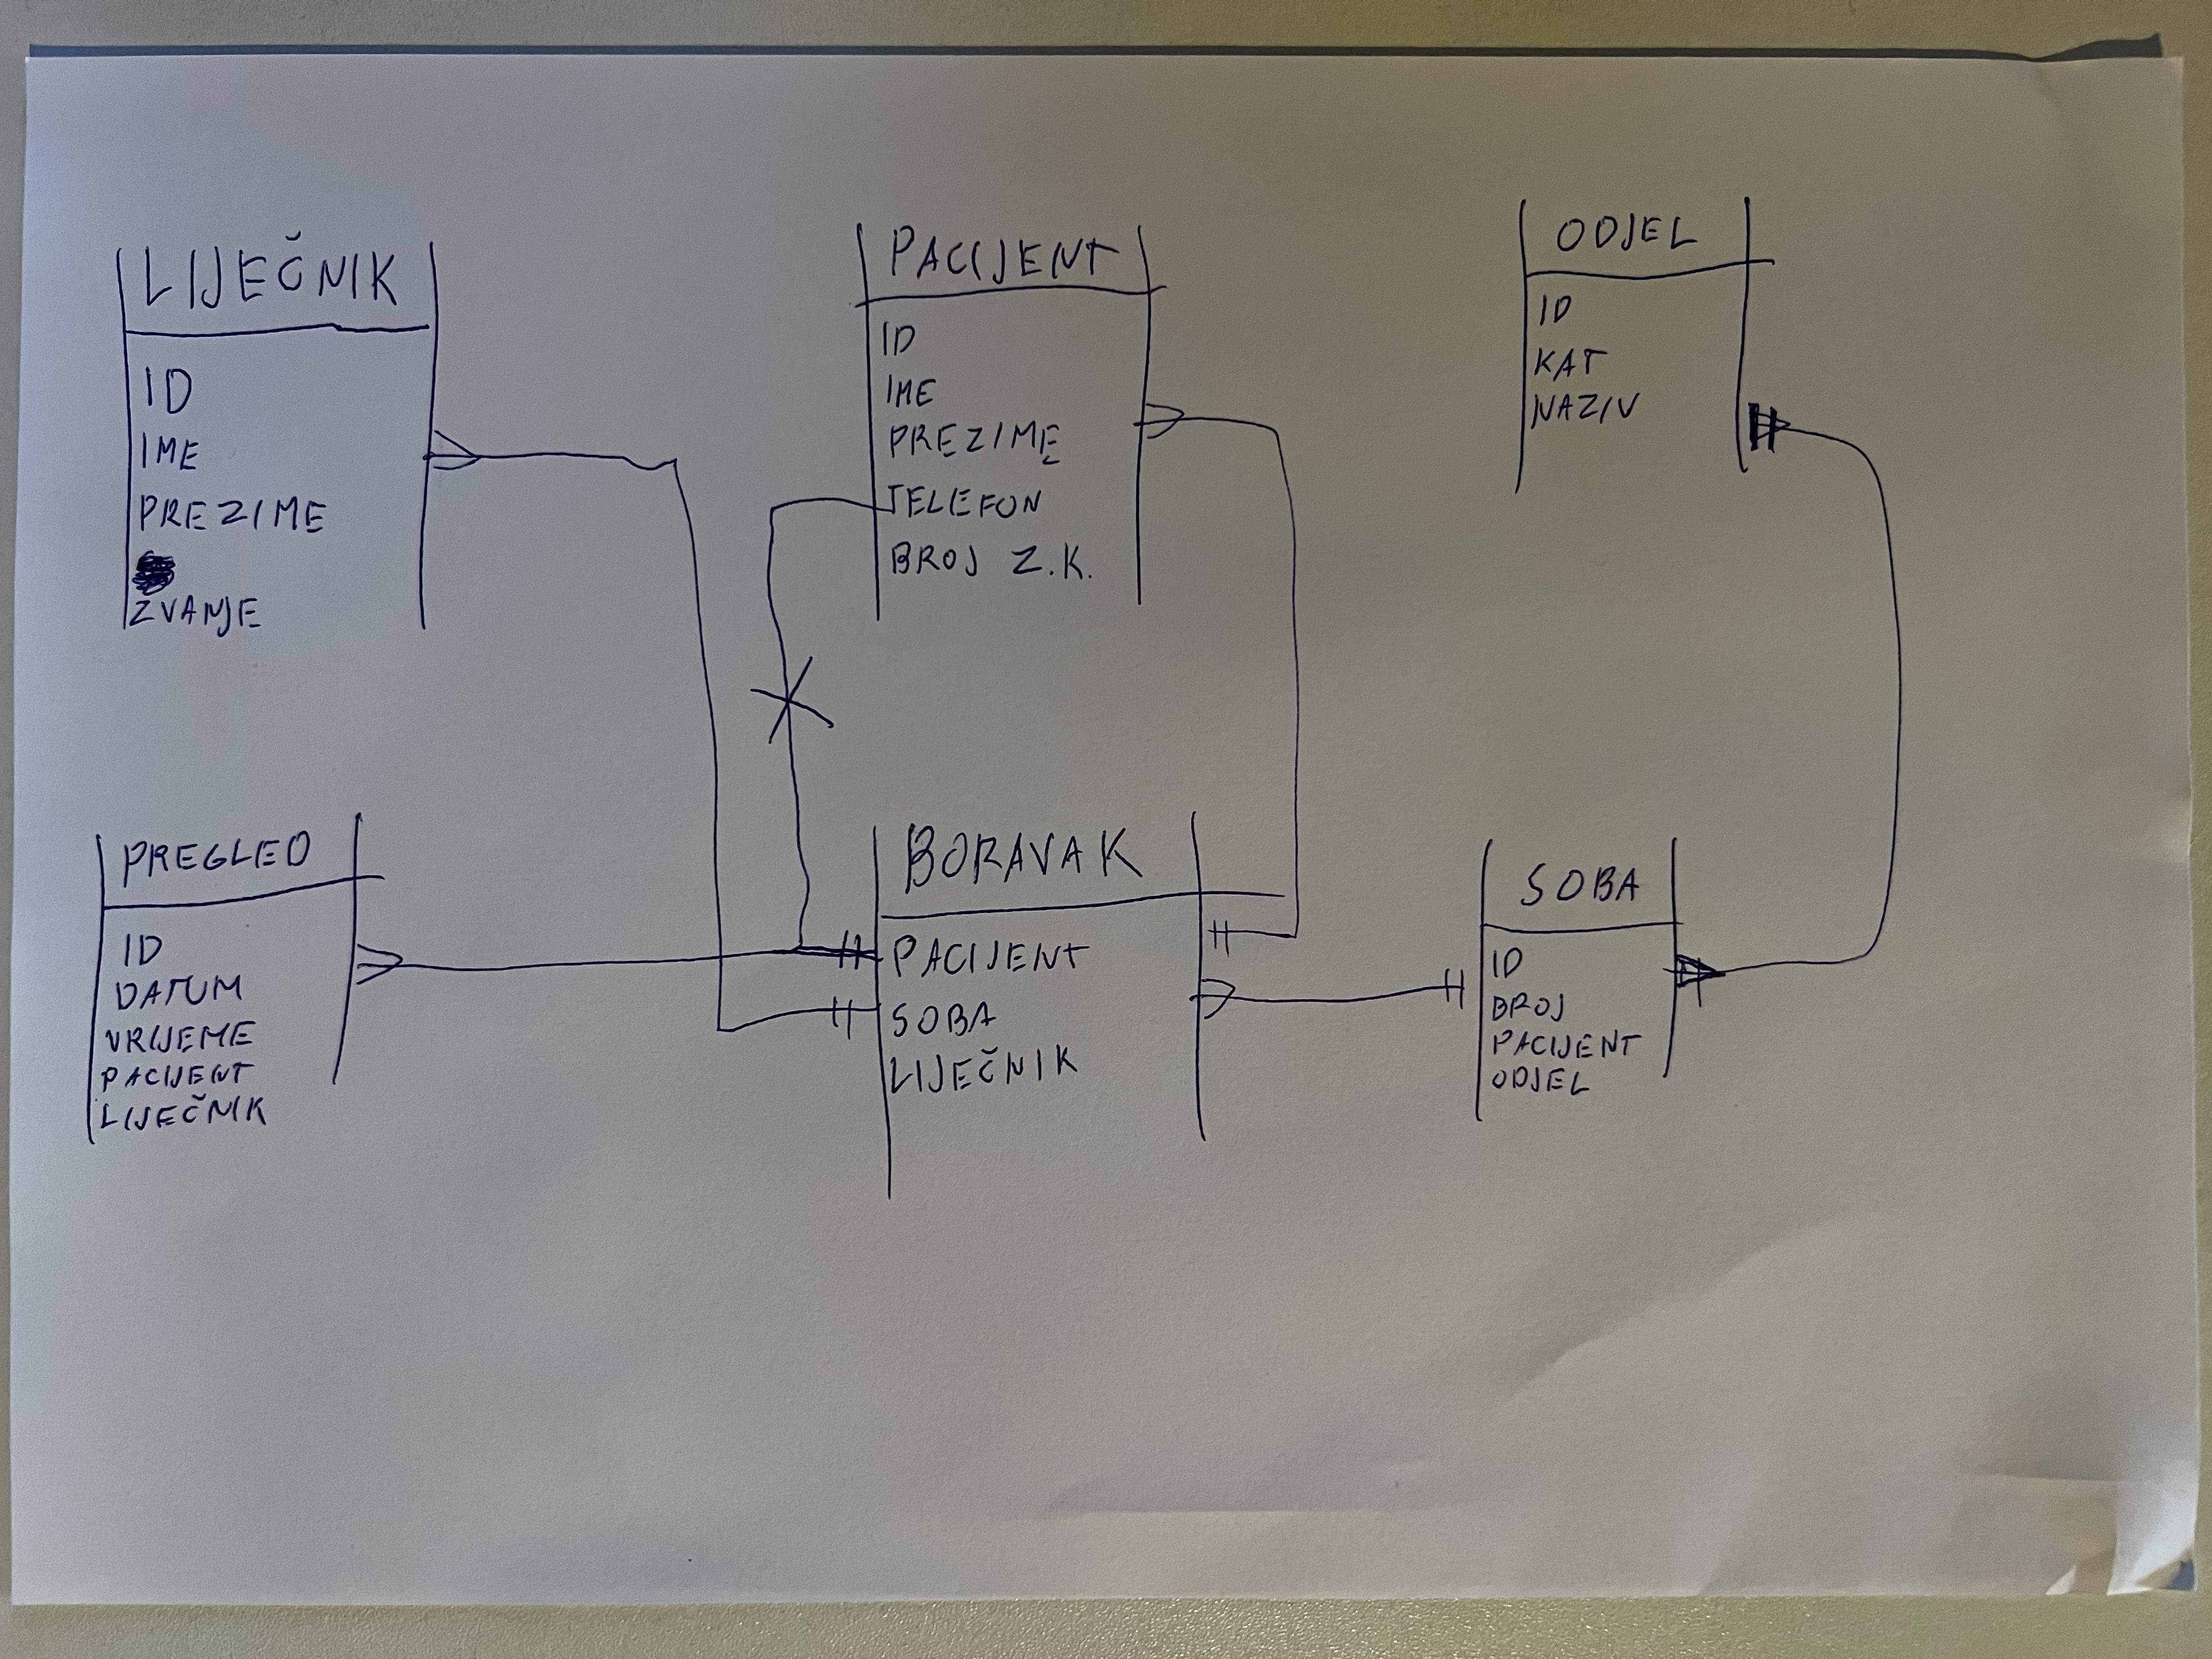 LIJEČNIK
ID
IME
PREZIME
ZVANJE
PACIJENT
ID
IME
PREZIME
TELEFON
BROJ Z.K.
ODJEL
ID
KAT
NAZIV
PREGLED
ID
DATUM
VRIJEME
PACIJENT
LIJEČNIK
BORAVAK
PACIJENT
SOBA
LIJEČNIK
SOBA
ID
BROJ
PACIJENT
ODJEL